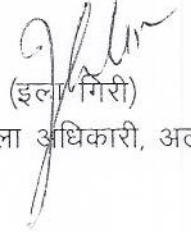 (इला गिरी)
ला अधिकारी, अल